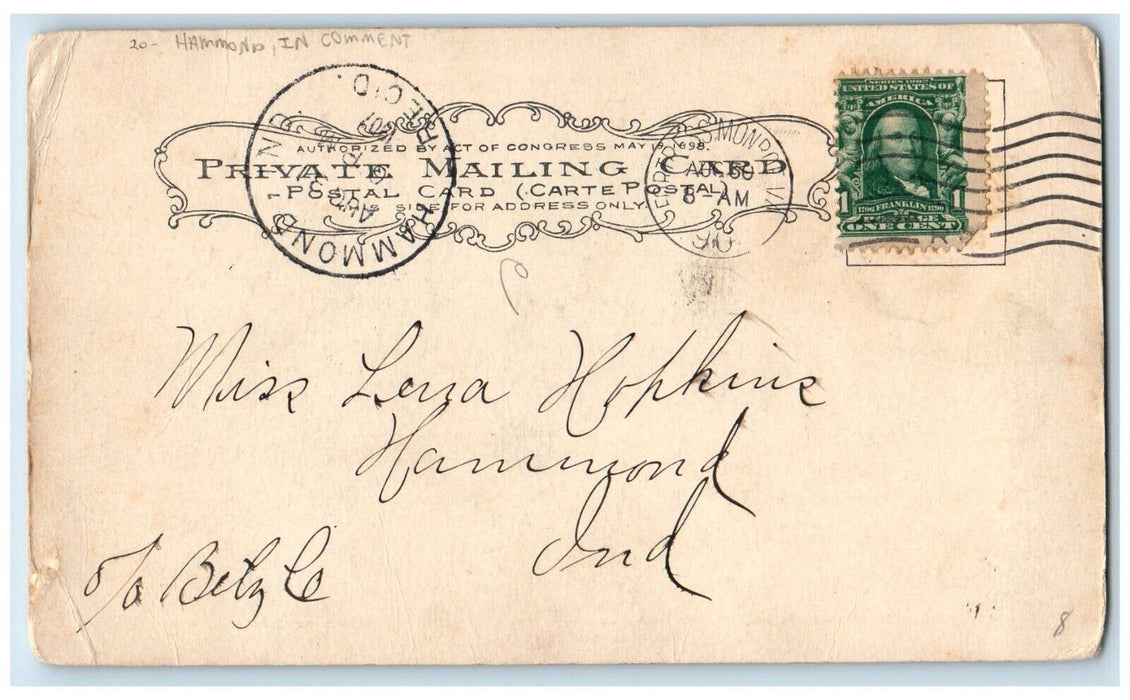 20- HAMMOND, IN COMMENT
AUTHORIZED BY ACT OF CONGRESS MAY 19, 1898.
PRIVATE MAILING CARD
POSTAL CARD (CARTE POSTAL)
THIS SIDE FOR ADDRESS ONLY.
HAMMOND, IND.
REC'D.
AUG
8-AM
SERIES 1902
UNITED STATES OF
AMERICA
1 1706 FRANKLIN 1790 1
POSTAGE
ONE CENT
Miss Lena Hopkins
Hammond
Ind
c/o Betz Co
8